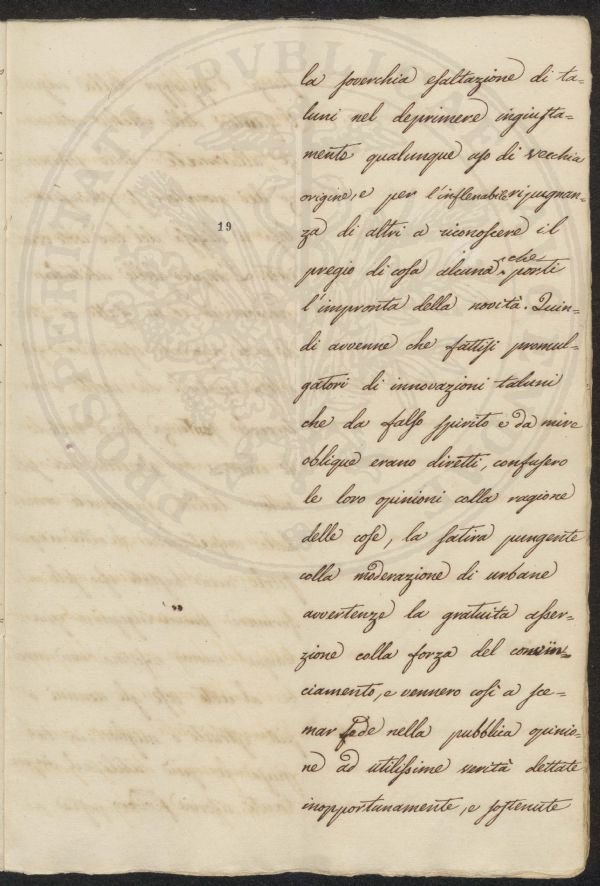 la soverchia esaltazione di ta-
luni nel deprimere ingiusta-
mente qualunque uso di vecchia
origine, e per l'inflenabile ripugnan-
19
za di altri a riconoscere il
pregio di cosa alcuna che porti
l'impronta della novità. Quin-
di avvenne che fattisi promul-
gatori di innovazioni taluni
che da falso spirito e da mire
oblique erano diretti, confusero
le loro opinioni colla ragione
delle cose, la satira pungente
colla moderazione di urbane
avvertenze la gratuita asser-
zione colla forza del convin-
ciamento, e vennero così a sce-
mar fede nella pubblica opinio-
ne ad utilissime verità dettate
inopportunamente, e sostenute
PROSPERITATI PUBLICAE